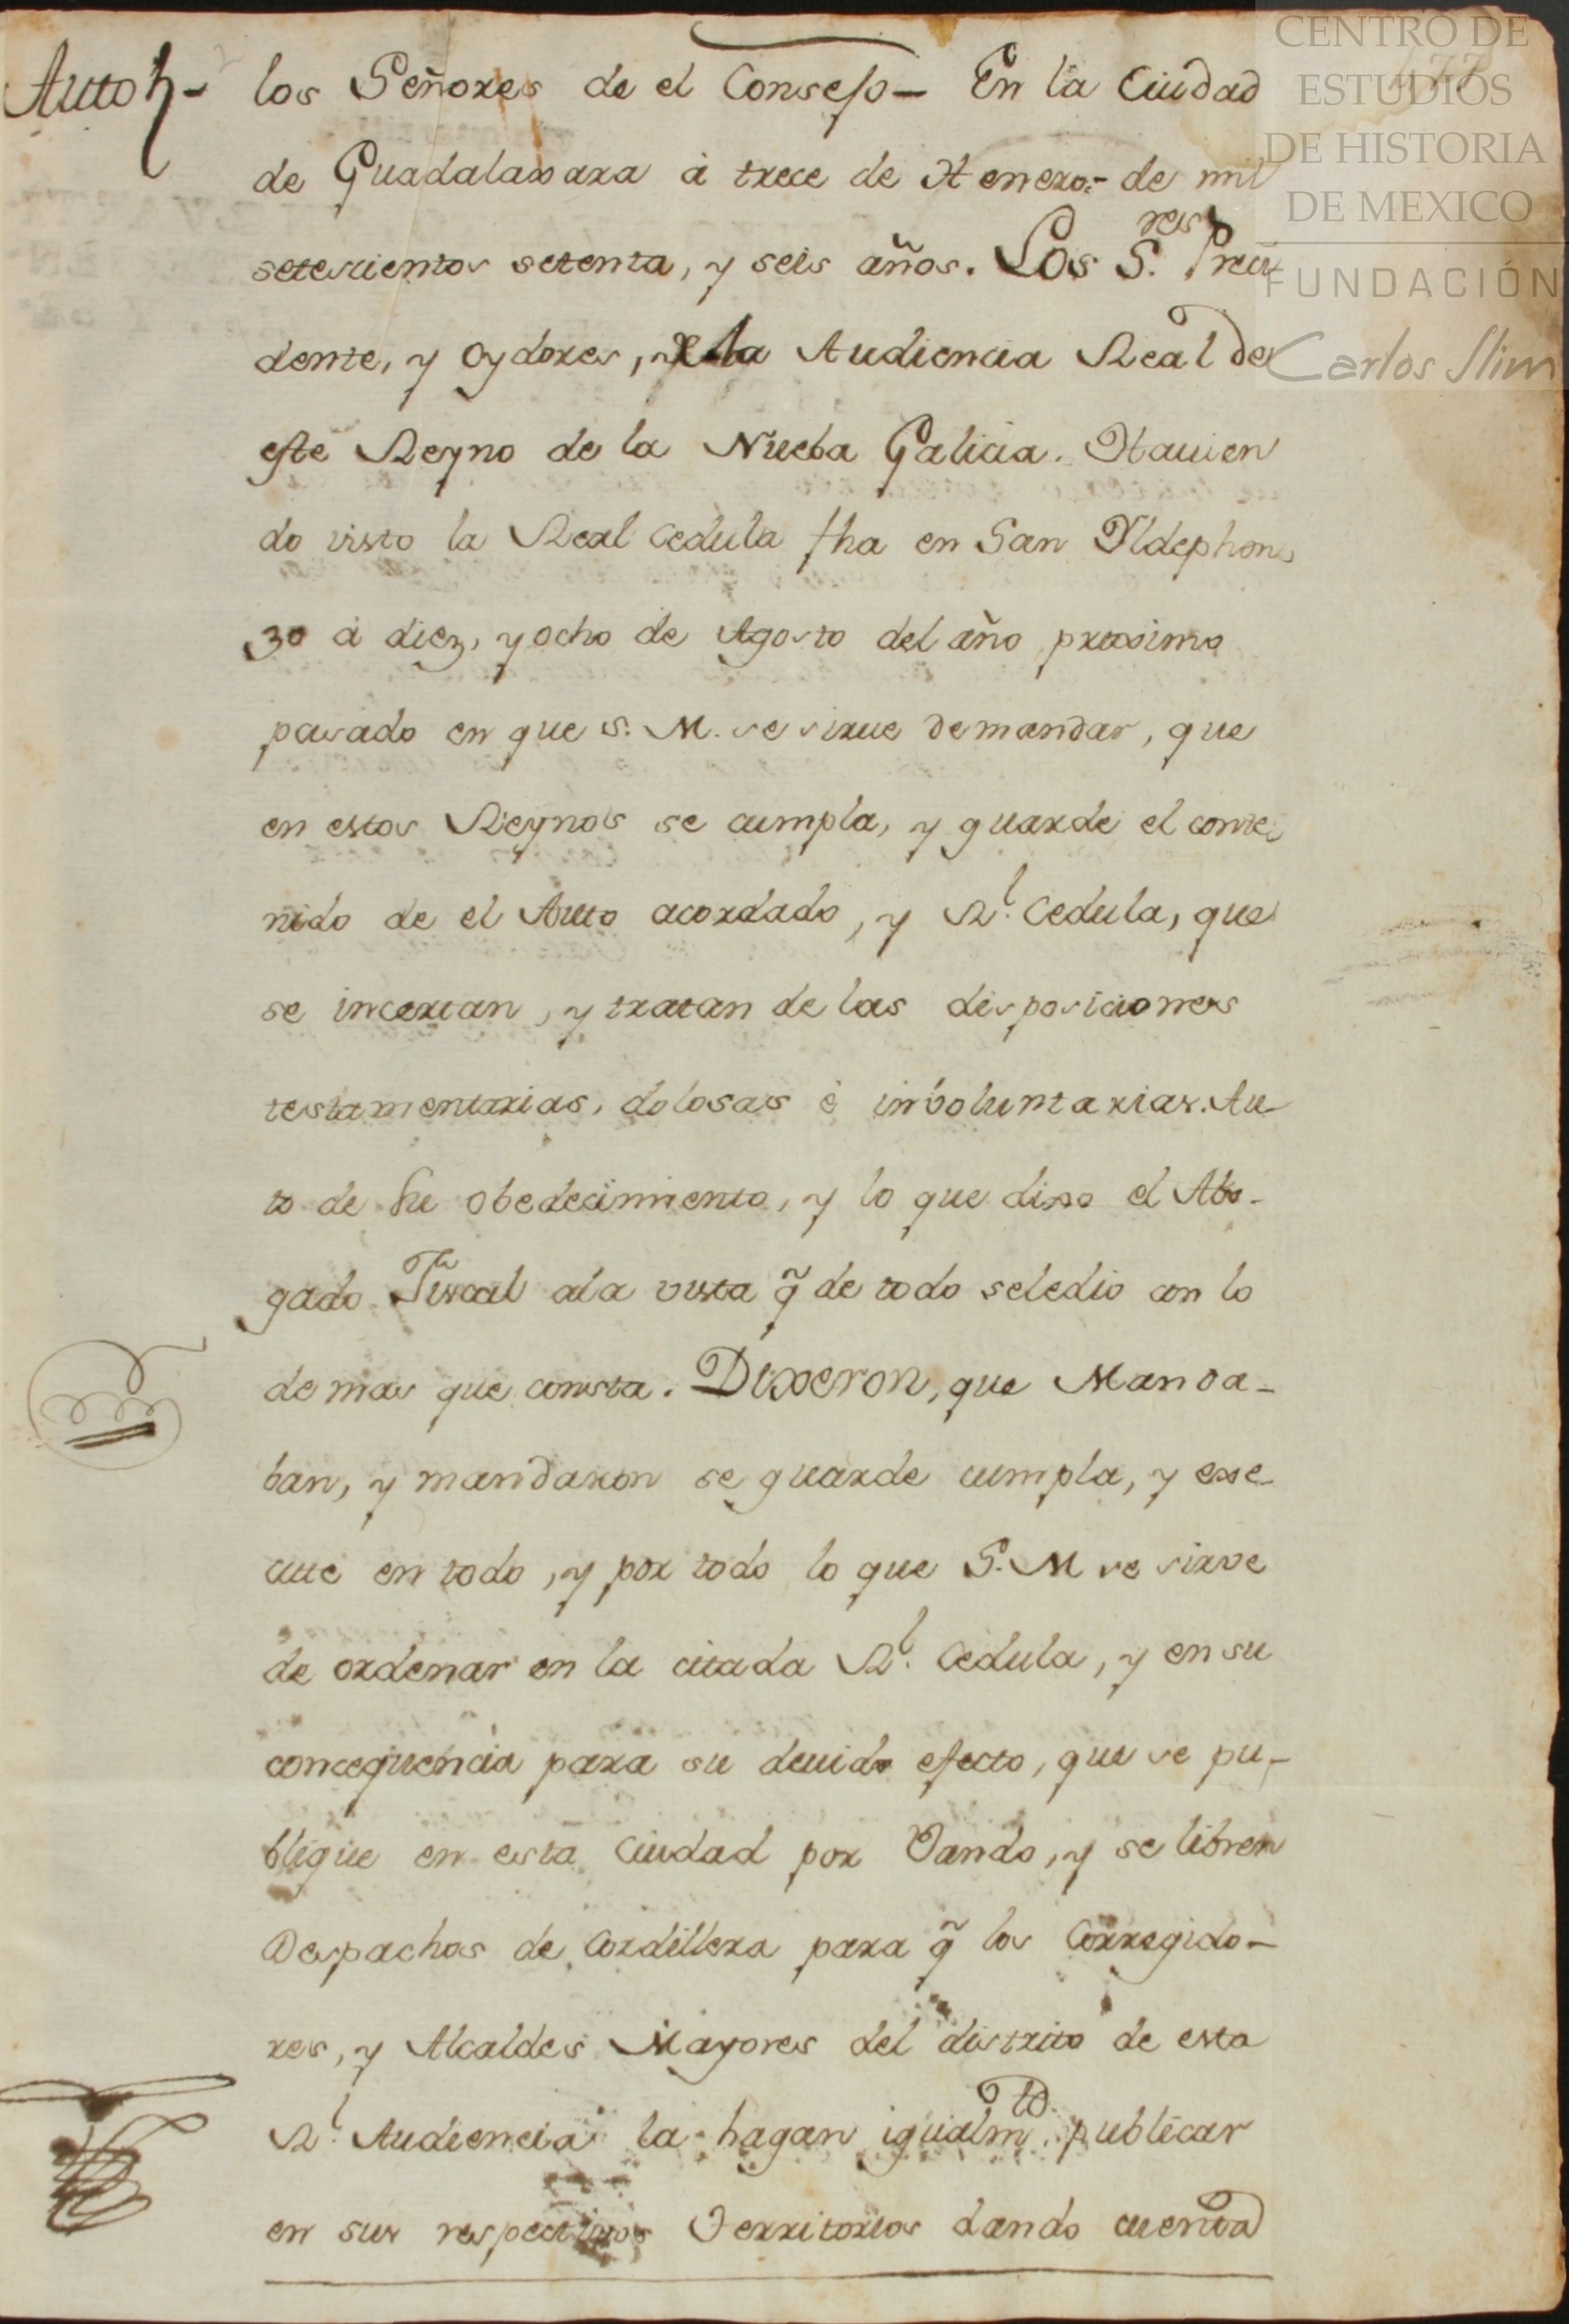 Auto
los Señores de el Consejo- En la Ciudad
de Guadalaxara à trece de Henero- de mil
setescientos setenta, y seis años. Los S.res Presi
dente, y Oydores, de la Audiencia Real de
este Reyno de la Nueba Galicia. Havien
do visto la Real Cedula fha en San Yldephon
so à diez, y ocho de Agosto del año proximo
pasado en que S. M. se sirue de mandar, que
en estos Reynos se cumpla, y guarde el conte
nido de el Auto acordado, y Rl. Cedula, que
se incertan, y tratan de las disposiciones
testamentarias, dolosas è inboluntarias. Au-
to de su obedecimiento, y lo que dixo el Abo-
gado Fiscal ala vista q̃ de todo seledio con lo
demas que consta. Dixeron, que Manda-
ban, y mandaron se guarde cumpla, y exe-
cute en todo, y por todo lo que S. M se sirve
de ordenar en la citada Rl. Cedula, y en su
concequencia para su deuido efecto, que se pu-
blique en esta Ciudad por Vando, y se libren
Despachos de Cordillera para q̃ los Corregido-
res, y Alcaldes Mayores del distrito de esta
Rl. Audiencia la hagan igualmte. publicar
en sus respectivos Territorios dando cuenta
CENTRO DE
ESTUDIOS
DE HISTORIA
DE MEXICO
FUNDACIÓN
Carlos Slim